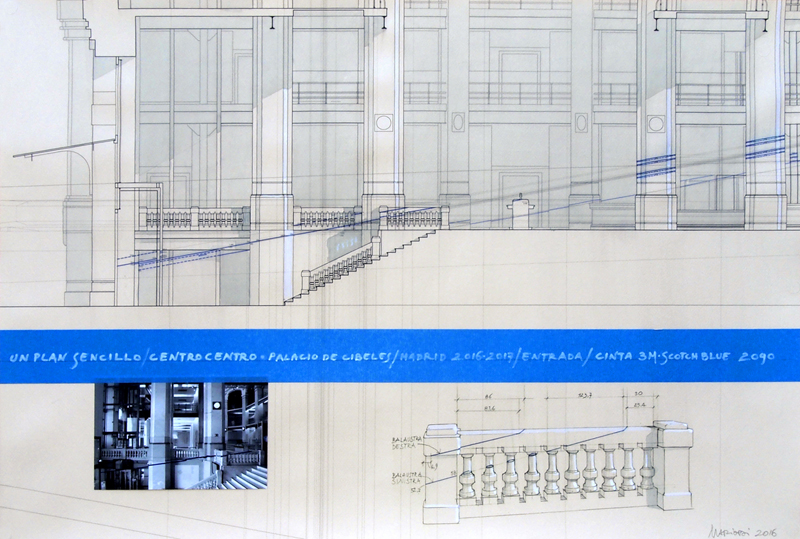 UN PLAN SENCILLO/CENTROCENTRO - PALACIO DE CIBELES/MADRID 2016-2017/ENTRADA/CINTA 3M-SCOTCH BLUE 2090
BALAUSTRA
DESTRA
BALAUSTRA
SINISTRA
2016